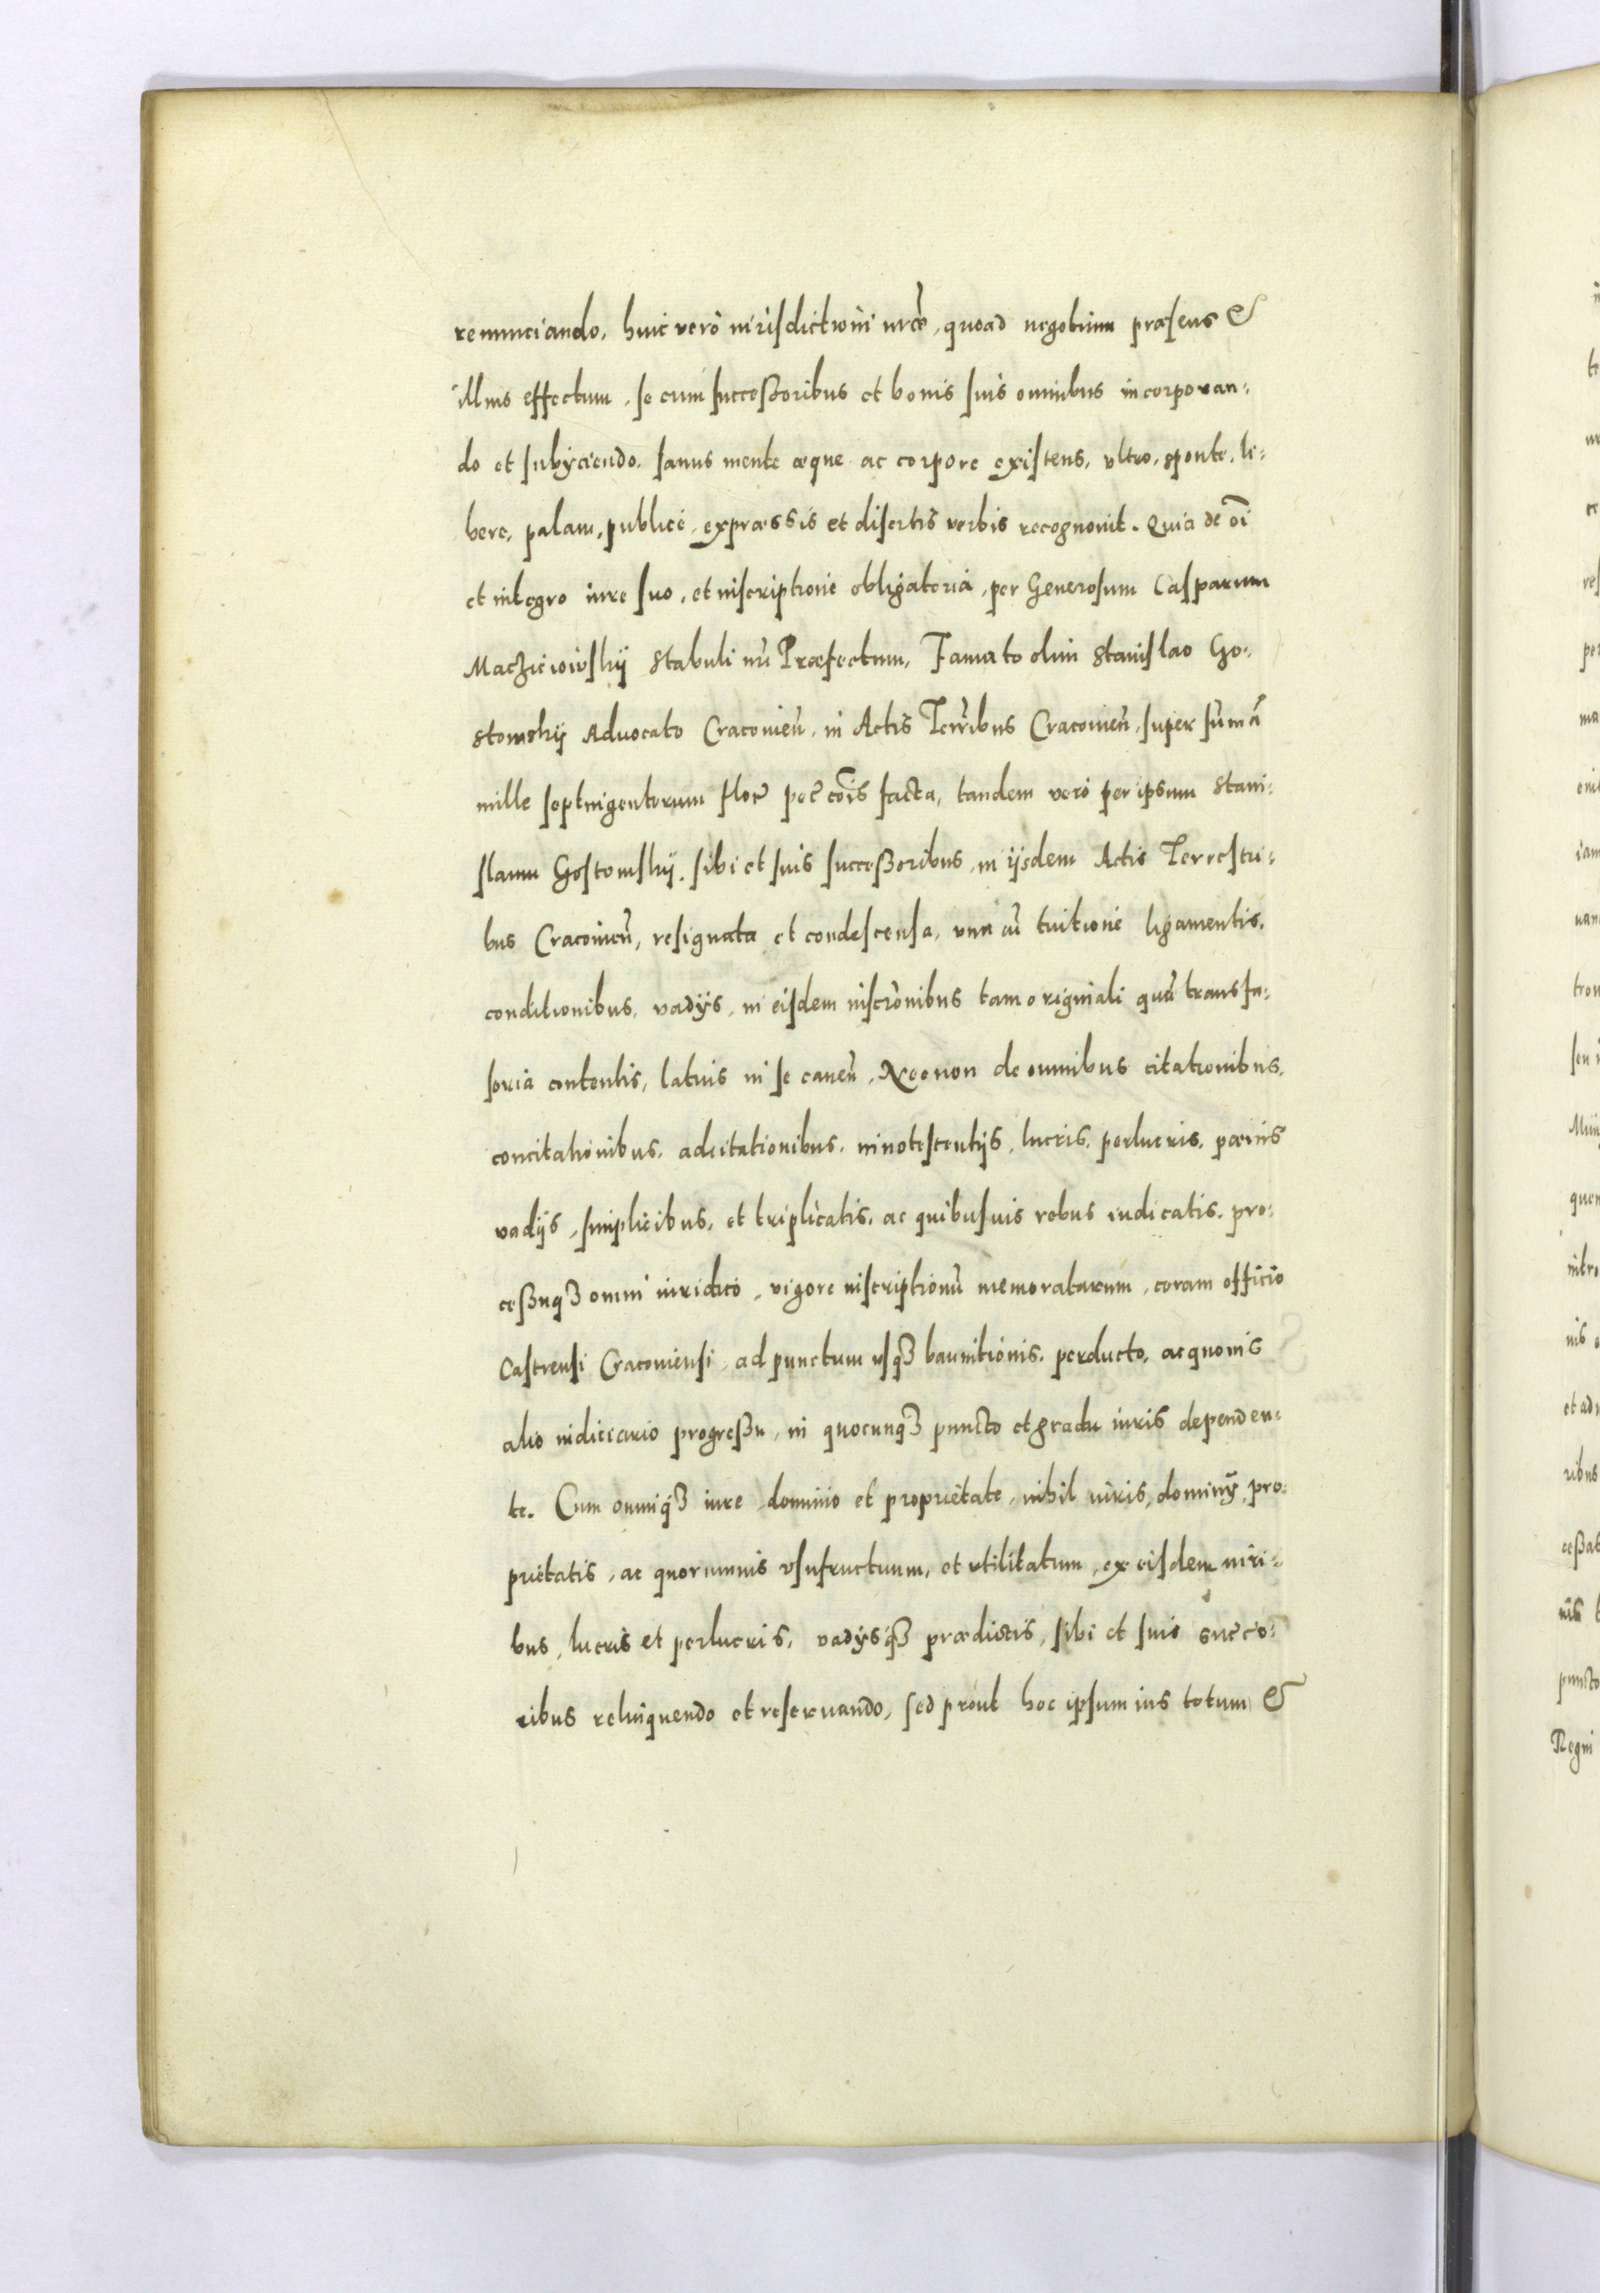 renunciando, huic vero iurisdictioni nræ, quoad negotium præsens &
illius effectum, se cum successoribus et bonis suis omnibus incorporan-
do et subyciendo. sanus mente æque ac corpore existens, ultro, sponte, li-
bere, palam, publicè, expræssis et disertis verbis recognovit. Quia de oi
et integro iure suo, et inscriptione obligatoria, per Generosum Casparum
Macziciowsky Stabuli nri Præfectum, Famato olim Stanislao Go-
stomsky Advocato Cracovien, in Actis Terribus Cracovien, super sumã
mille septingentorum flor pec cois facta, tandem vero per ipsum Stani-
slaum Gostomsky, sibi et suis successoribus, in ijsdem Actis Terrestri-
bus Cracovien, resignata et condescensa, una cũ tuitione ligamentis,
conditionibus, vadys, in eisdem inscronibus tam originali quã transfu-
soria contentis, latius in se canen, Necnon de omnibus citationibus,
concitationibus, adcitationibus, innotescentijs, lucris, perlucris, pœnis
vadijs, simplicibus, et triplicatis, ac quibusuis rebus iudicatis, pro-
cessuqȝ omni iuridico, vigore inscriptionũ memoratarum, coram officio
Castrensi Cracoviensi, ad punctum usqȝ bannitionis, perducto, ac quovis
alio iudiciario progressu, in quocunqȝ puncto et gradu iuris dependen-
te. Cum omniqȝ iure dominio et proprietate, nihil iuris, dominy, pro-
prietatis, ac quorumuis usufructuum, et utilitatum, ex eisdem iuri-
bus, lucris et perlucris, vadysqȝ prædictis, sibi et suis succeo-
ribus relinquendo et reservando, sed prout hoc ipsum ius totum &